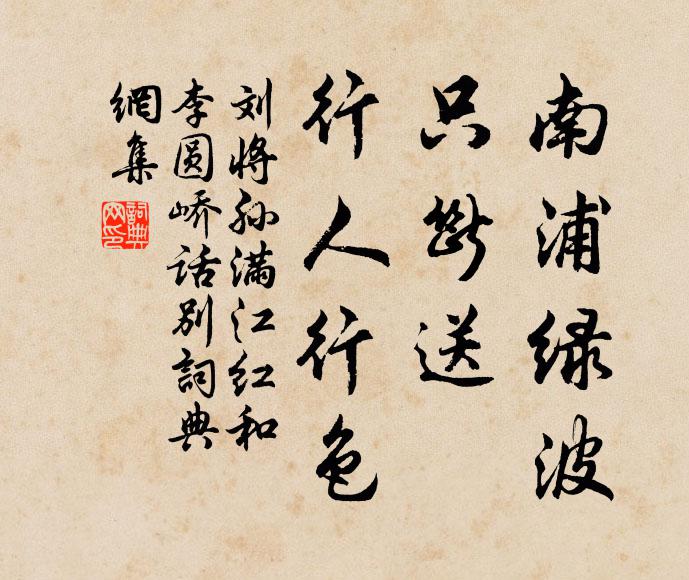 南浦绿波
只断送
行人行色
刘將孙满江红和
李圓峤话别詞典
網集
詞典
网印